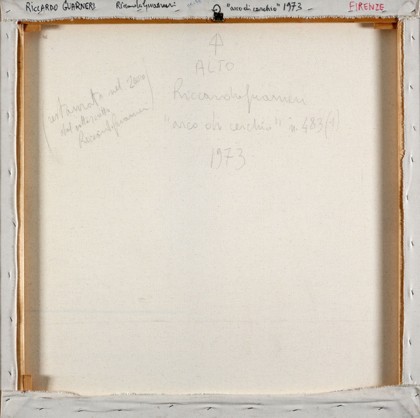 RICCARDO GUARNERI Riccardo Guarneri "arco di cerchio" 1973 FIRENZE
ALTO
Riccardo Guarneri
"arco di cerchio" n. 483
1973
restaurato nel 2000
dal sottoscritto
Riccardo Guarneri